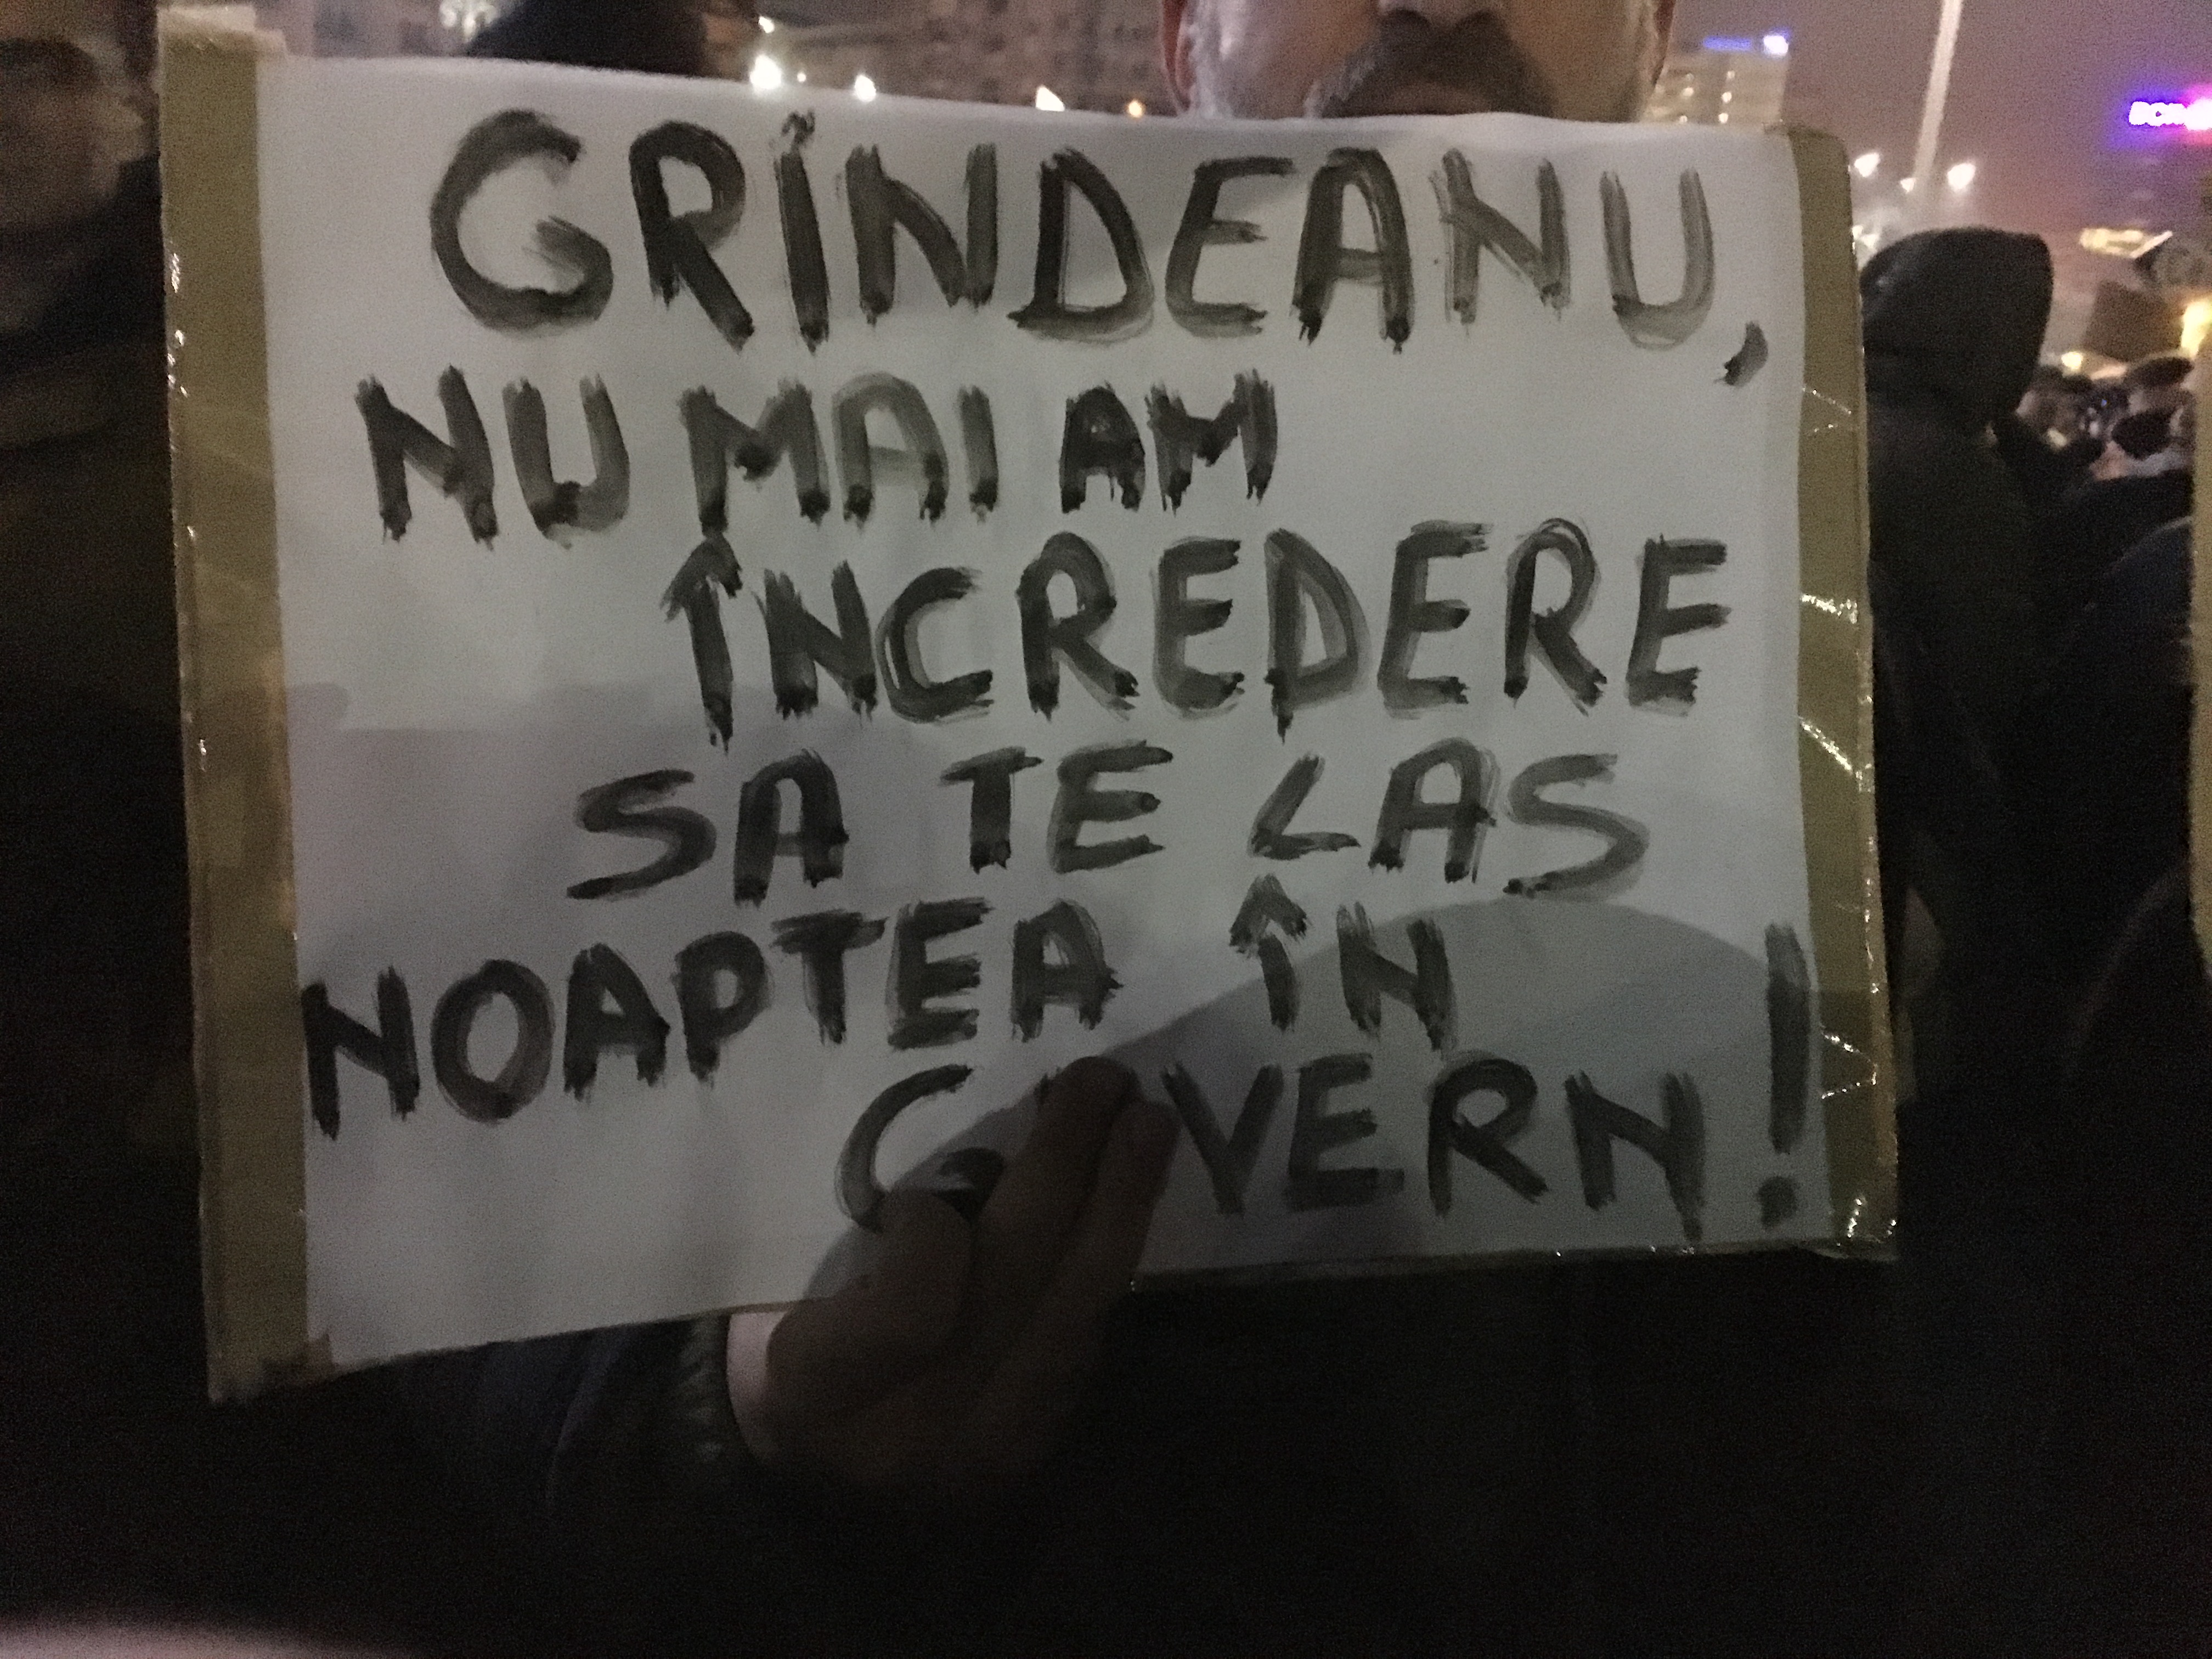 GRINDEANU,
NU MAI AM
ÎNCREDERE
SA TE LAS
NOAPTEA ÎN
GUVERN!